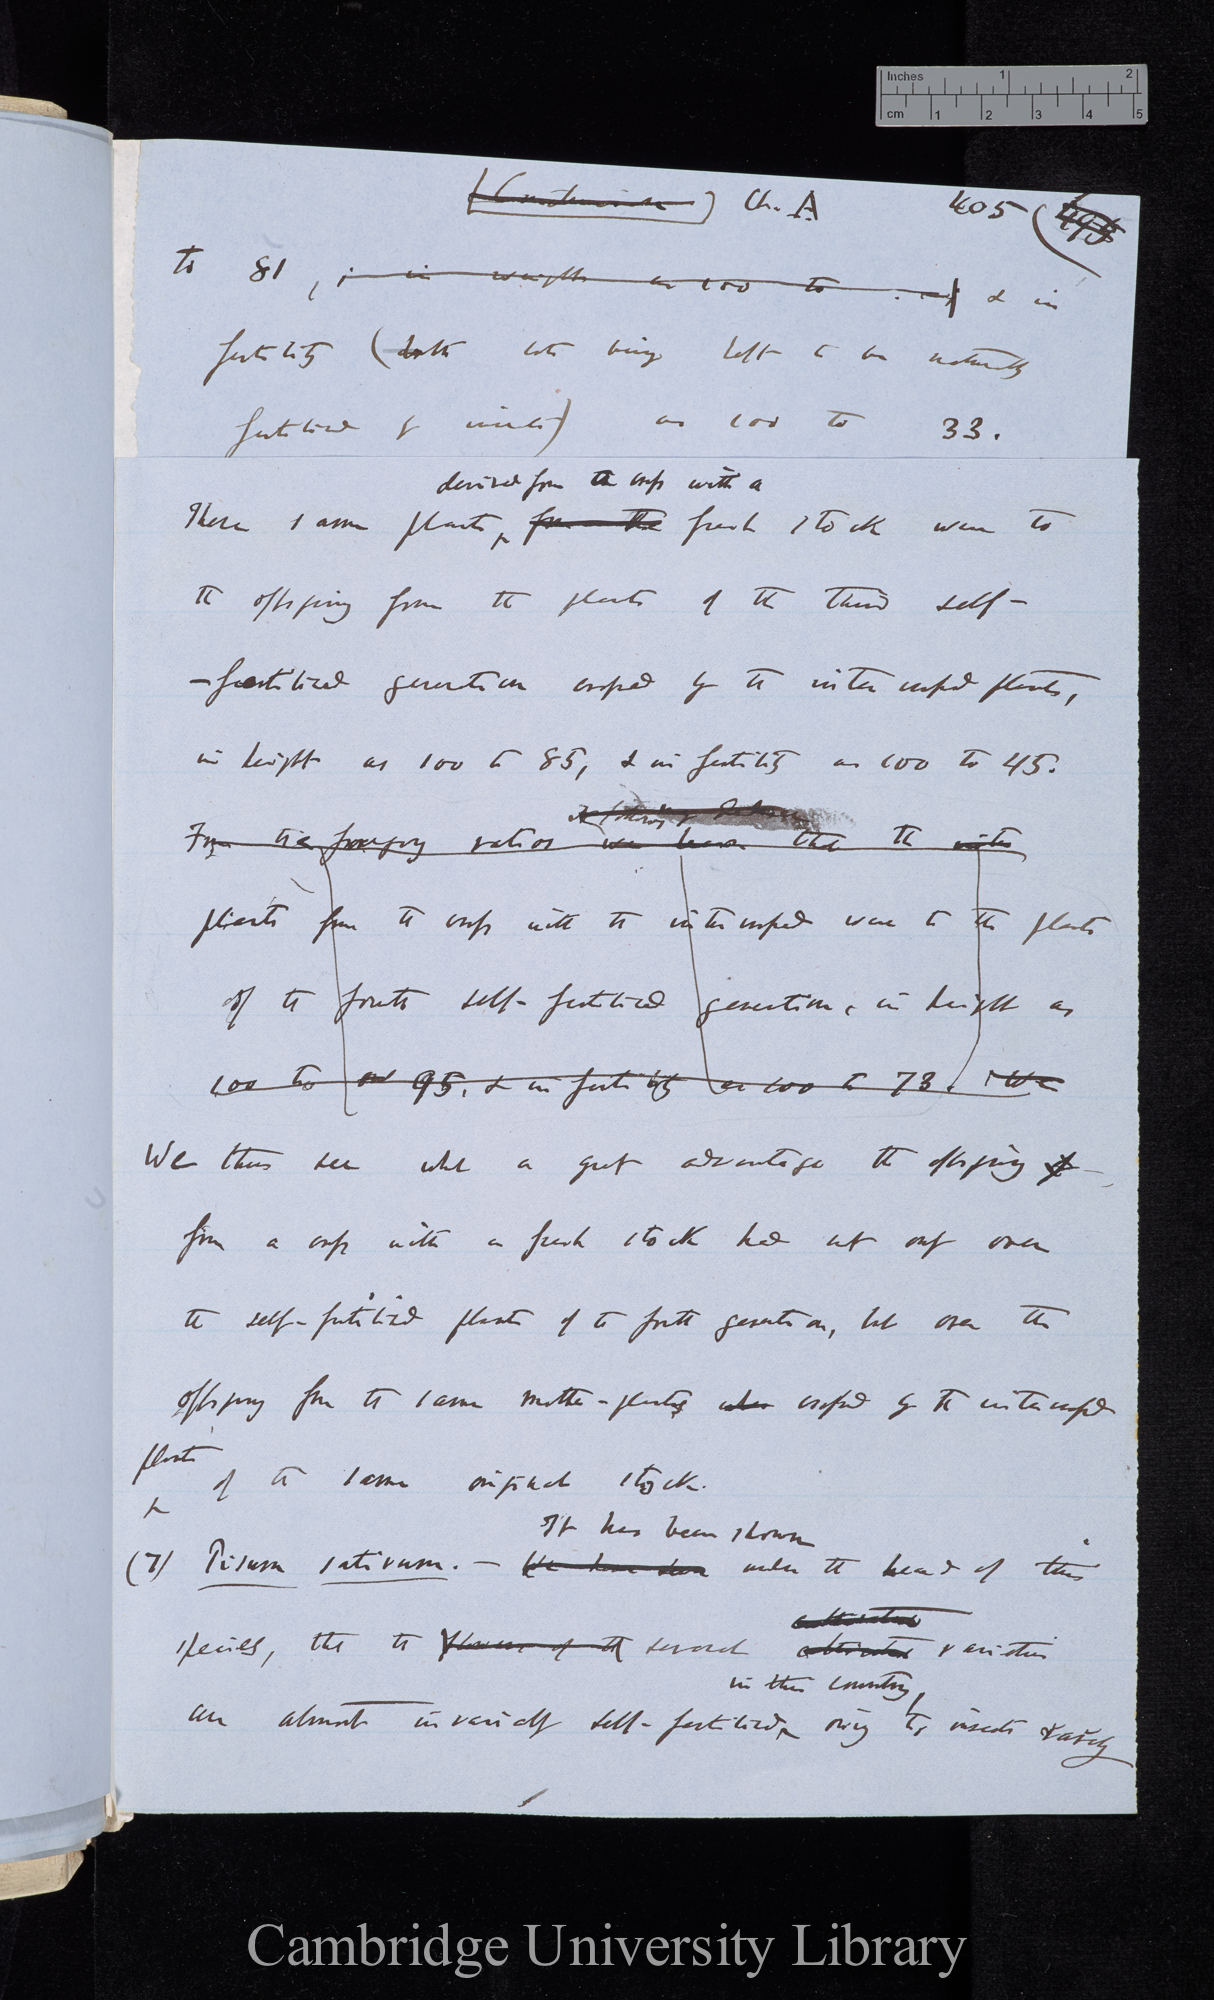 Inches 1 2
cm 1 2 3 4 5
Ch. A 405
to 81, in weight as 100 to & in
fertility (both lots being left to be naturally
fertilised by insects) as 100 to 33.
derived from the cross with a
These same plants, from the fresh stock were to
the offspring from the plants of the third self-
-fertilised generation crossed by the intercrossed plants,
in height as 100 to 85, & in fertility as 100 to 45.
From the foregoing ratios we learn that the inter
plants from the cross with the intercrossed were to the plants
of the fourth self-fertilised generation, in height as
100 to 95, & in fertility as 100 to 73. We
We thus see what a great advantage the offspring
from a cross with a fresh stock had not only over
the self-fertilised plants of the fourth generation, but over the
offspring from the same mother-plants when crossed by the intercrossed
plants
of the same original stock.
It has been shown
(7) Pisum sativum. — We have seen under the head of this
species, that the flowers of the several cultivated varieties
in this country,
are almost invariably self-fertilised, owing to insects rarely
Cambridge University Library